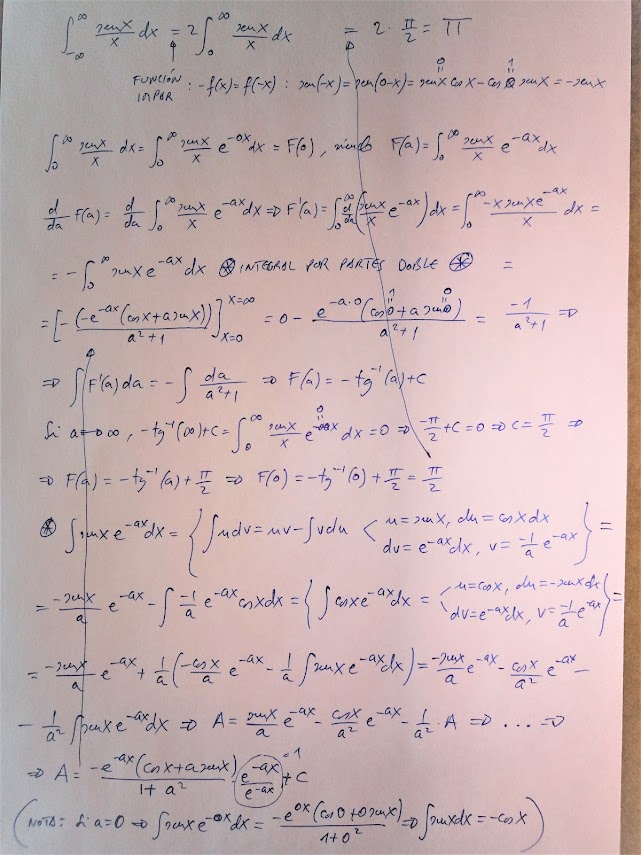 ∫_{-∞}^{∞} senx/x dx = 2∫_0^∞ senx/x dx = 2·π/2 = π
FUNCIÓN IMPAR : -f(x)=f(-x) : sen(-x)=sen(0-x)=sen0 (=0) cosx-cos0 (=1) senx=-senx
∫_0^∞ senx/x dx = ∫_0^∞ senx/x e^{-0x}dx = F(0), siendo F(a)=∫_0^∞ senx/x e^{-ax}dx
d/da F(a) = d/da ∫_0^∞ senx/x e^{-ax}dx ⇒ F'(a)=∫_0^∞ d/da(senx/x e^{-ax})dx = ∫_0^∞ -x senx e^{-ax}/x dx =
= -∫_0^∞ senx e^{-ax}dx ⊛ INTEGRAL POR PARTES DOBLE ⊛ =
= [-(-e^{-ax}(cosx+a senx))/(a²+1)]_{x=0}^{x=∞} = 0 - e^{-a·0}(cos0 (=1) + a sen0 (=0))/(a²+1) = -1/(a²+1) ⇒
⇒ ∫F'(a)da = -∫ da/(a²+1) ⇒ F(a)=-tg^{-1}(a)+C
Si a→∞, -tg^{-1}(∞)+C=∫_0^∞ senx/x e^{-∞x} (=0) dx=0 ⇒ -π/2+C=0 ⇒ C=π/2 ⇒
⇒ F(a)=-tg^{-1}(a)+π/2 ⇒ F(0)=-tg^{-1}(0)+π/2=π/2
⊛ ∫senx e^{-ax}dx = {∫udv=uv-∫vdu < u=senx, du=cosxdx
dv=e^{-ax}dx, v=-1/a e^{-ax}} =
= -senx/a e^{-ax} - ∫ -1/a e^{-ax}cosxdx = {∫cosx e^{-ax}dx = < u=cosx, du=-senxdx
dv=e^{-ax}dx, v=-1/a e^{-ax}} =
= -senx/a e^{-ax} + 1/a(-cosx/a e^{-ax} - 1/a ∫senx e^{-ax}dx) = -senx/a e^{-ax} - cosx/a² e^{-ax} -
- 1/a² ∫senx e^{-ax}dx ⇒ A = senx/a e^{-ax} - cosx/a² e^{-ax} - 1/a²·A ⇒ ... ⇒
⇒ A = -e^{-ax}(cosx+a senx)/(1+a²) · e^{-ax}/e^{-ax} (=1) + C
(NOTA: Si a=0 ⇒ ∫senx e^{-0x}dx = -e^{0x}(cos0+0senx)/(1+0²) ⇒ ∫senxdx=-cosx)